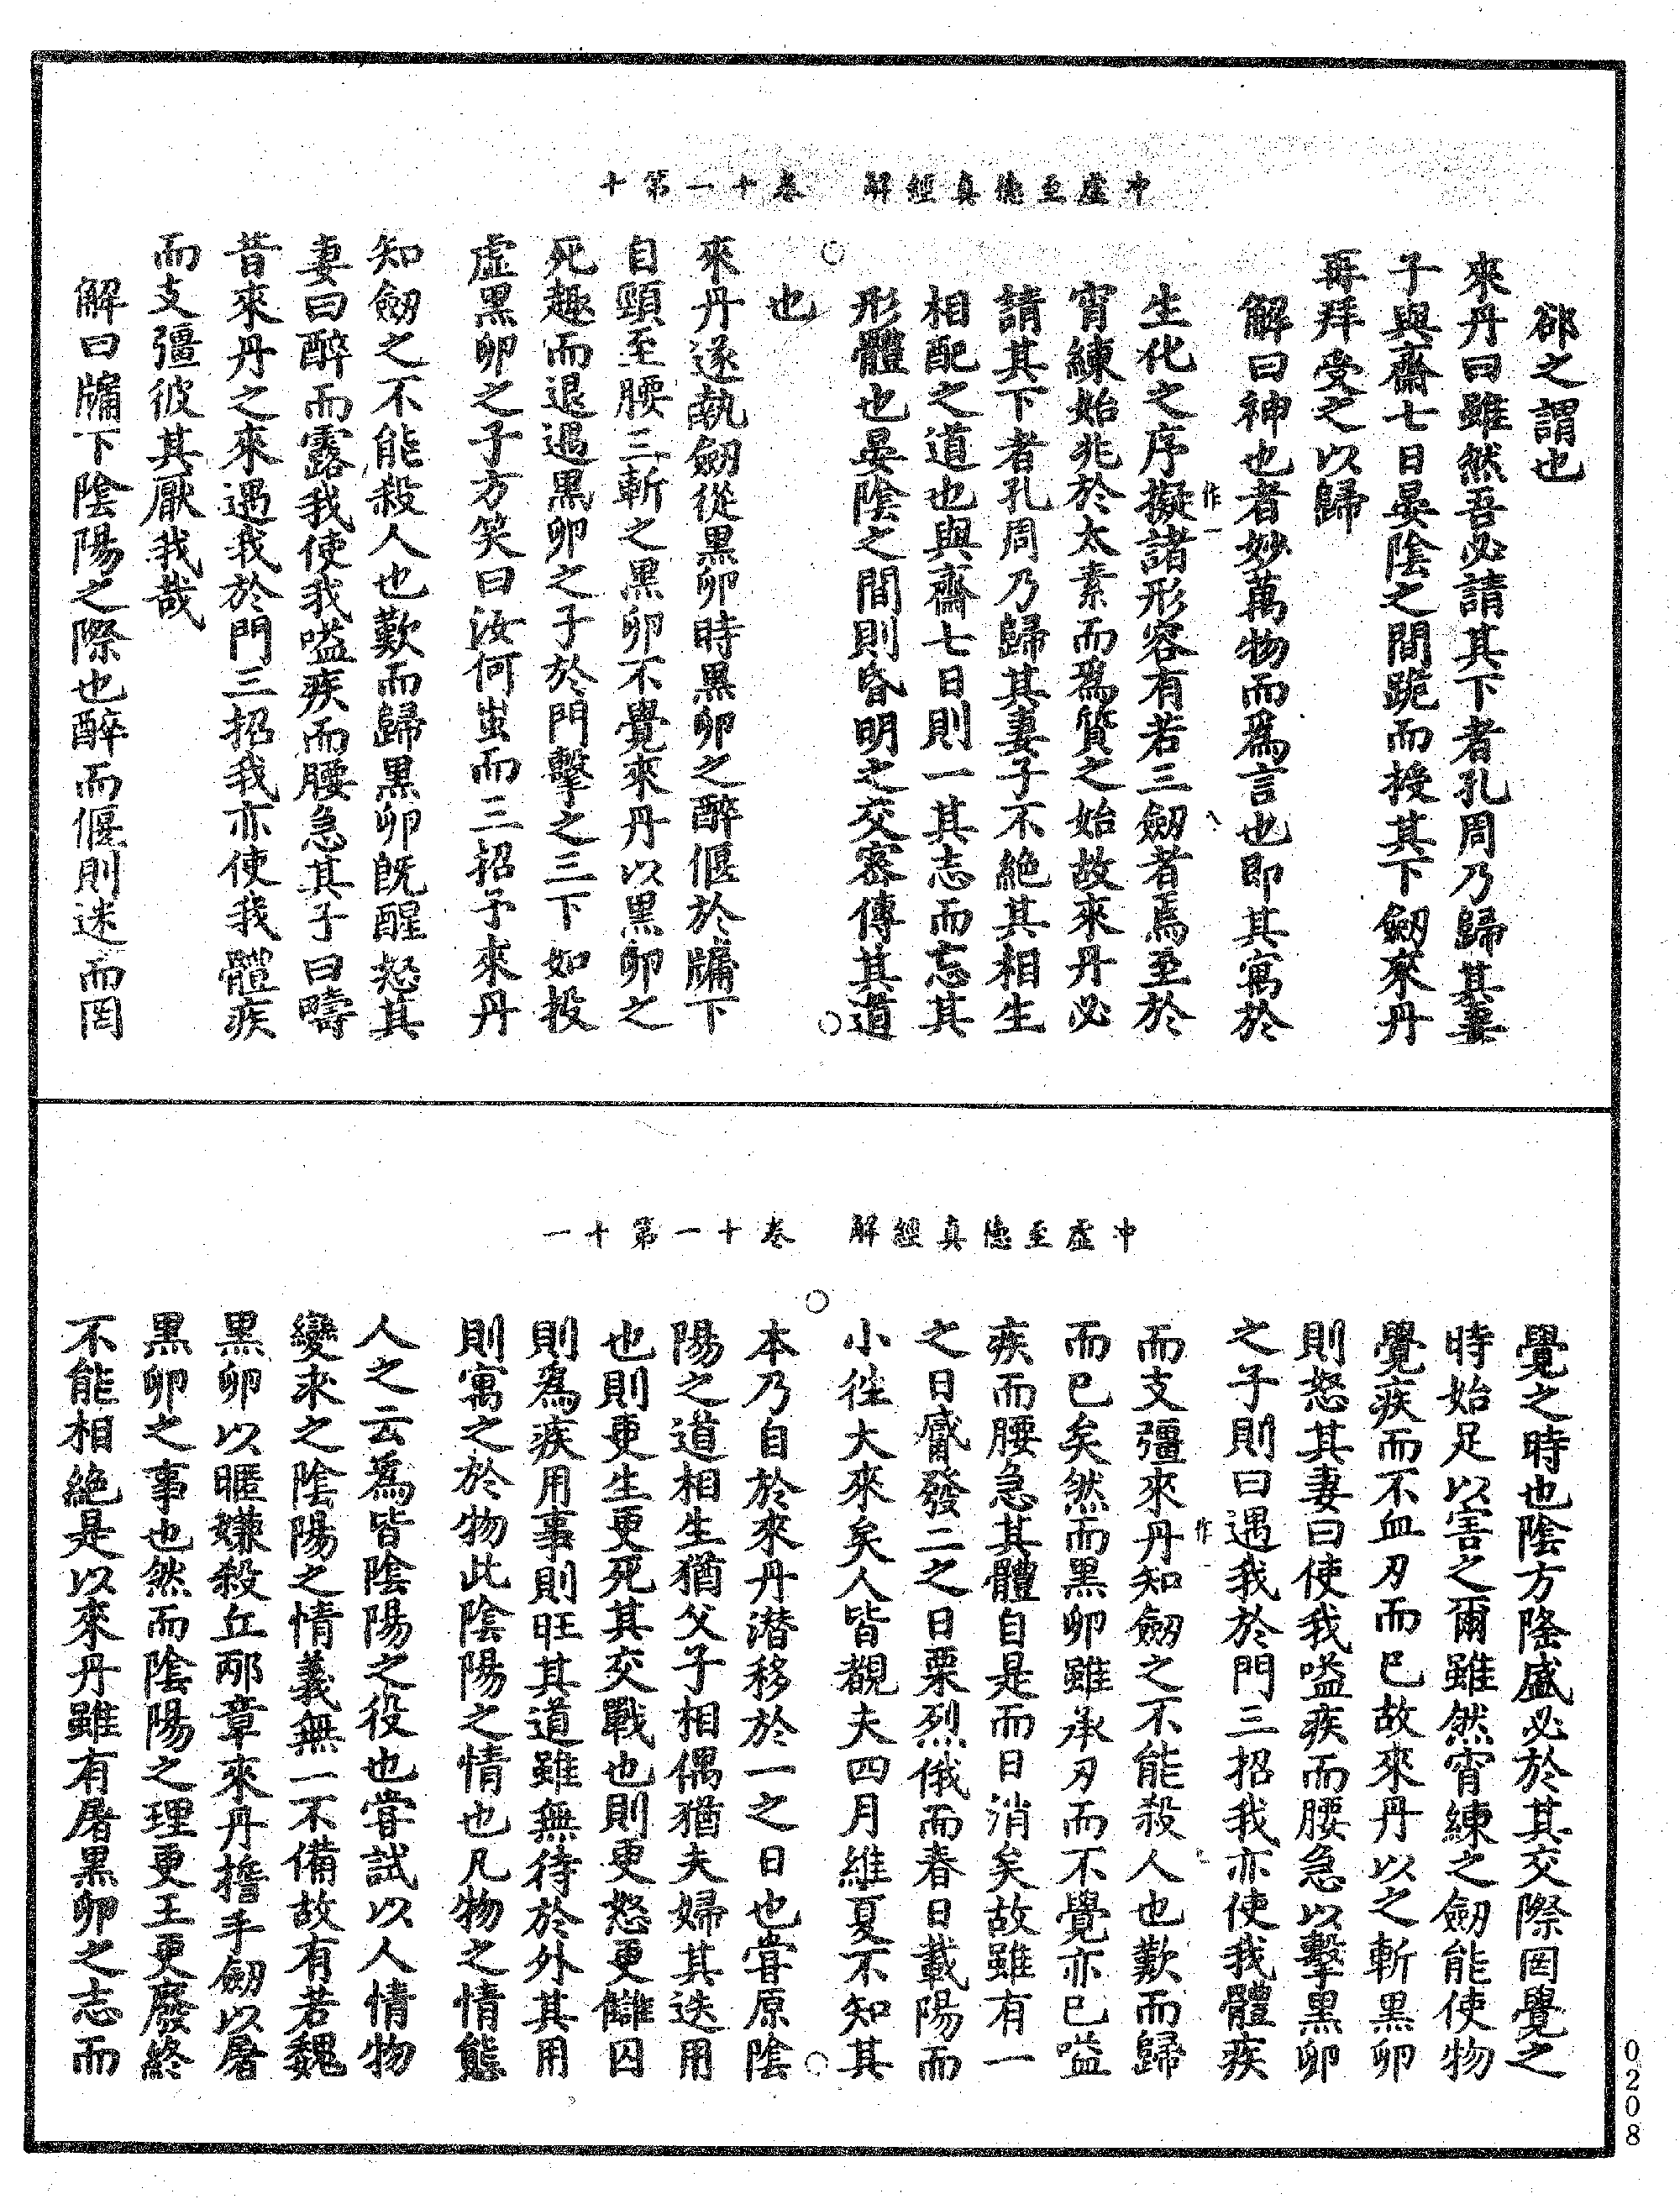 冲虛至德真經解　卷十一第十
郤之謂也
來丹曰雖然吾必請其下者孔周乃歸其妻
子與齋七日晏陰之間跪而授其下劒來丹
再拜受之以歸
解曰神也者妙萬物而爲言也即其寓於
作一
生化之序擬諸形容有若三劒者焉至於
宵練始兆於太素而爲質之始故來丹必
請其下者孔周乃歸其妻子不絶其相生
相配之道也與齋七日則一其志而忘其
形體也晏陰之間則昏明之交密傳其道
也
來丹遂執劒從黑卵時黑卵之醉偃於牖下
自頸至腰三斬之黑卵不覺來丹以黑卵之
死趣而退遇黑卵之子於門擊之三下如投
虛黑卵之子方笑曰汝何蚩而三招予來丹
知劒之不能殺人也歎而歸黑卵既醒怒其
妻曰醉而露我使我嗌疾而腰急其子曰疇
昔來丹之來遇我於門三招我亦使我體疾
而支彊彼其厭我哉
解曰牖下陰陽之際也醉而偃則迷而罔
冲虛至德真經解　卷十一第十一
覺之時也陰方隆盛必於其交際罔覺之
時始足以害之爾雖然宵練之劒能使物
覺疾而不血刃而已故來丹以之斬黑卵
則怒其妻曰使我嗌疾而腰急以擊黑卵
之子則曰遇我於門三招我亦使我體疾
作一
而支彊來丹知劒之不能殺人也歎而歸
而已矣然而黑卵雖承刃而不覺亦已嗌
疾而腰急其體自是而日消矣故雖有一
之日觱發二之日栗烈俄而春日載陽而
小往大來矣人皆覩夫四月維夏不知其
本乃自於來丹潜移於一之日也嘗原陰
陽之道相生猶父子相偶猶夫婦其迭用
也則更生更死其交戰也則更怒更讎囚
則爲疾用事則旺其道雖無待於外其用
則寓之於物此陰陽之情也凡物之情態
人之云爲皆陰陽之役也嘗試以人情物
變求之陰陽之情義無一不備故有若魏
黑卵以暱嫌殺丘邴章來丹擔手劒以屠
黑卵之事也然而陰陽之理更王更廢終
不能相絶是以來丹雖有屠黑卵之志而
0208